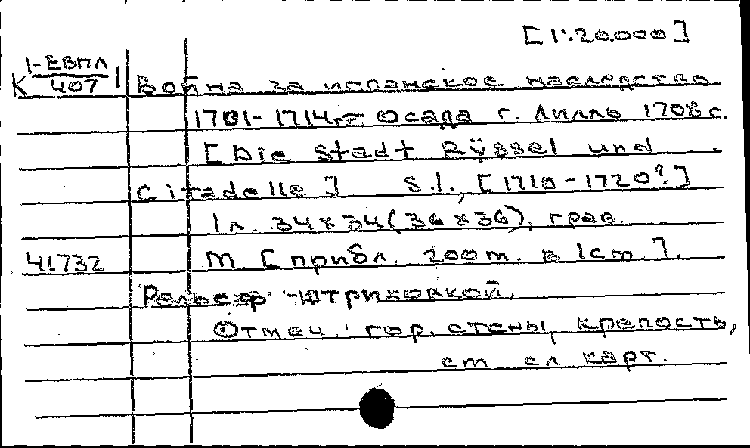 [1:20.000]
К 1-ЕВПЛ/407 Война за испанское наследство
1701-1714.- Осада г. Лилль 1708 г.
[Die Stadt Rÿssel und
Citadelle] S.l., [1710-1720?]
1 л. 34x34(36x36), грав.
41732 М [прибл. 200 m. в 1 cm.].
Рельеф - штриховкой.
Отмеч.: гор. стены, крепость,
см сл карт.